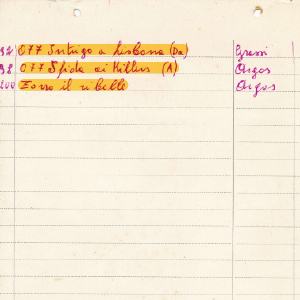 92 077 Intrigo a Lisbona (Da) Grassi
98 077 Sfida ai Killers (A) Argos
200 Zorro il ribelle Argos